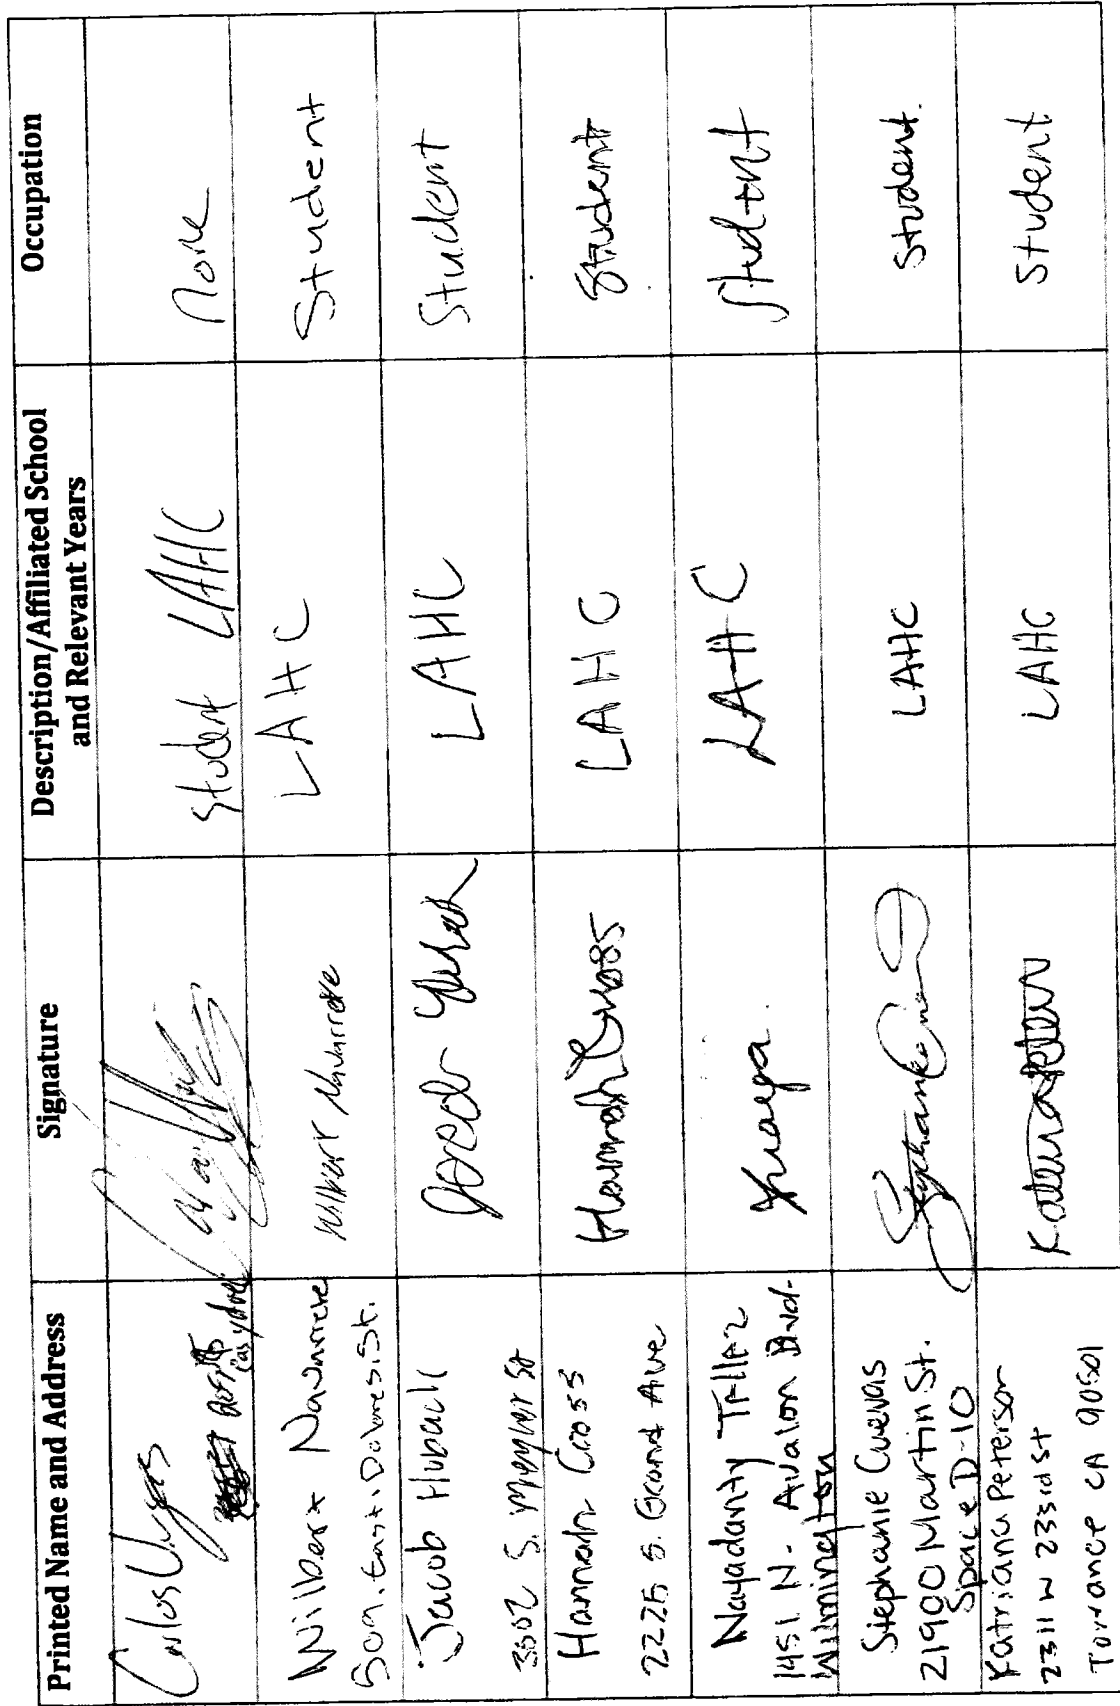 Printed Name and Address Signature Description/Affiliated School and Relevant Years Occupation
Carlos
Student LAHC
None
Wilbert Navarrete
509. East. Dolores. St.
Wilbert Navarrete
LAHC
Student
Jacob Huback
3502 S. Meyler St
Jacob
LAHC
Student
Hannah Cross
2225 S. Grand Ave
Hannah Cross
LAHC
Student
Nayadanty Tellez
1451 N. Avalon Blvd.
Wilmington
LAHC
Student
Stephanie Cuevas
21900 Martin St.
Space D-10
Stephanie
LAHC
Student.
Katriana Peterson
2311 W 233rd St
Torrance CA 90501
LAHC
Student